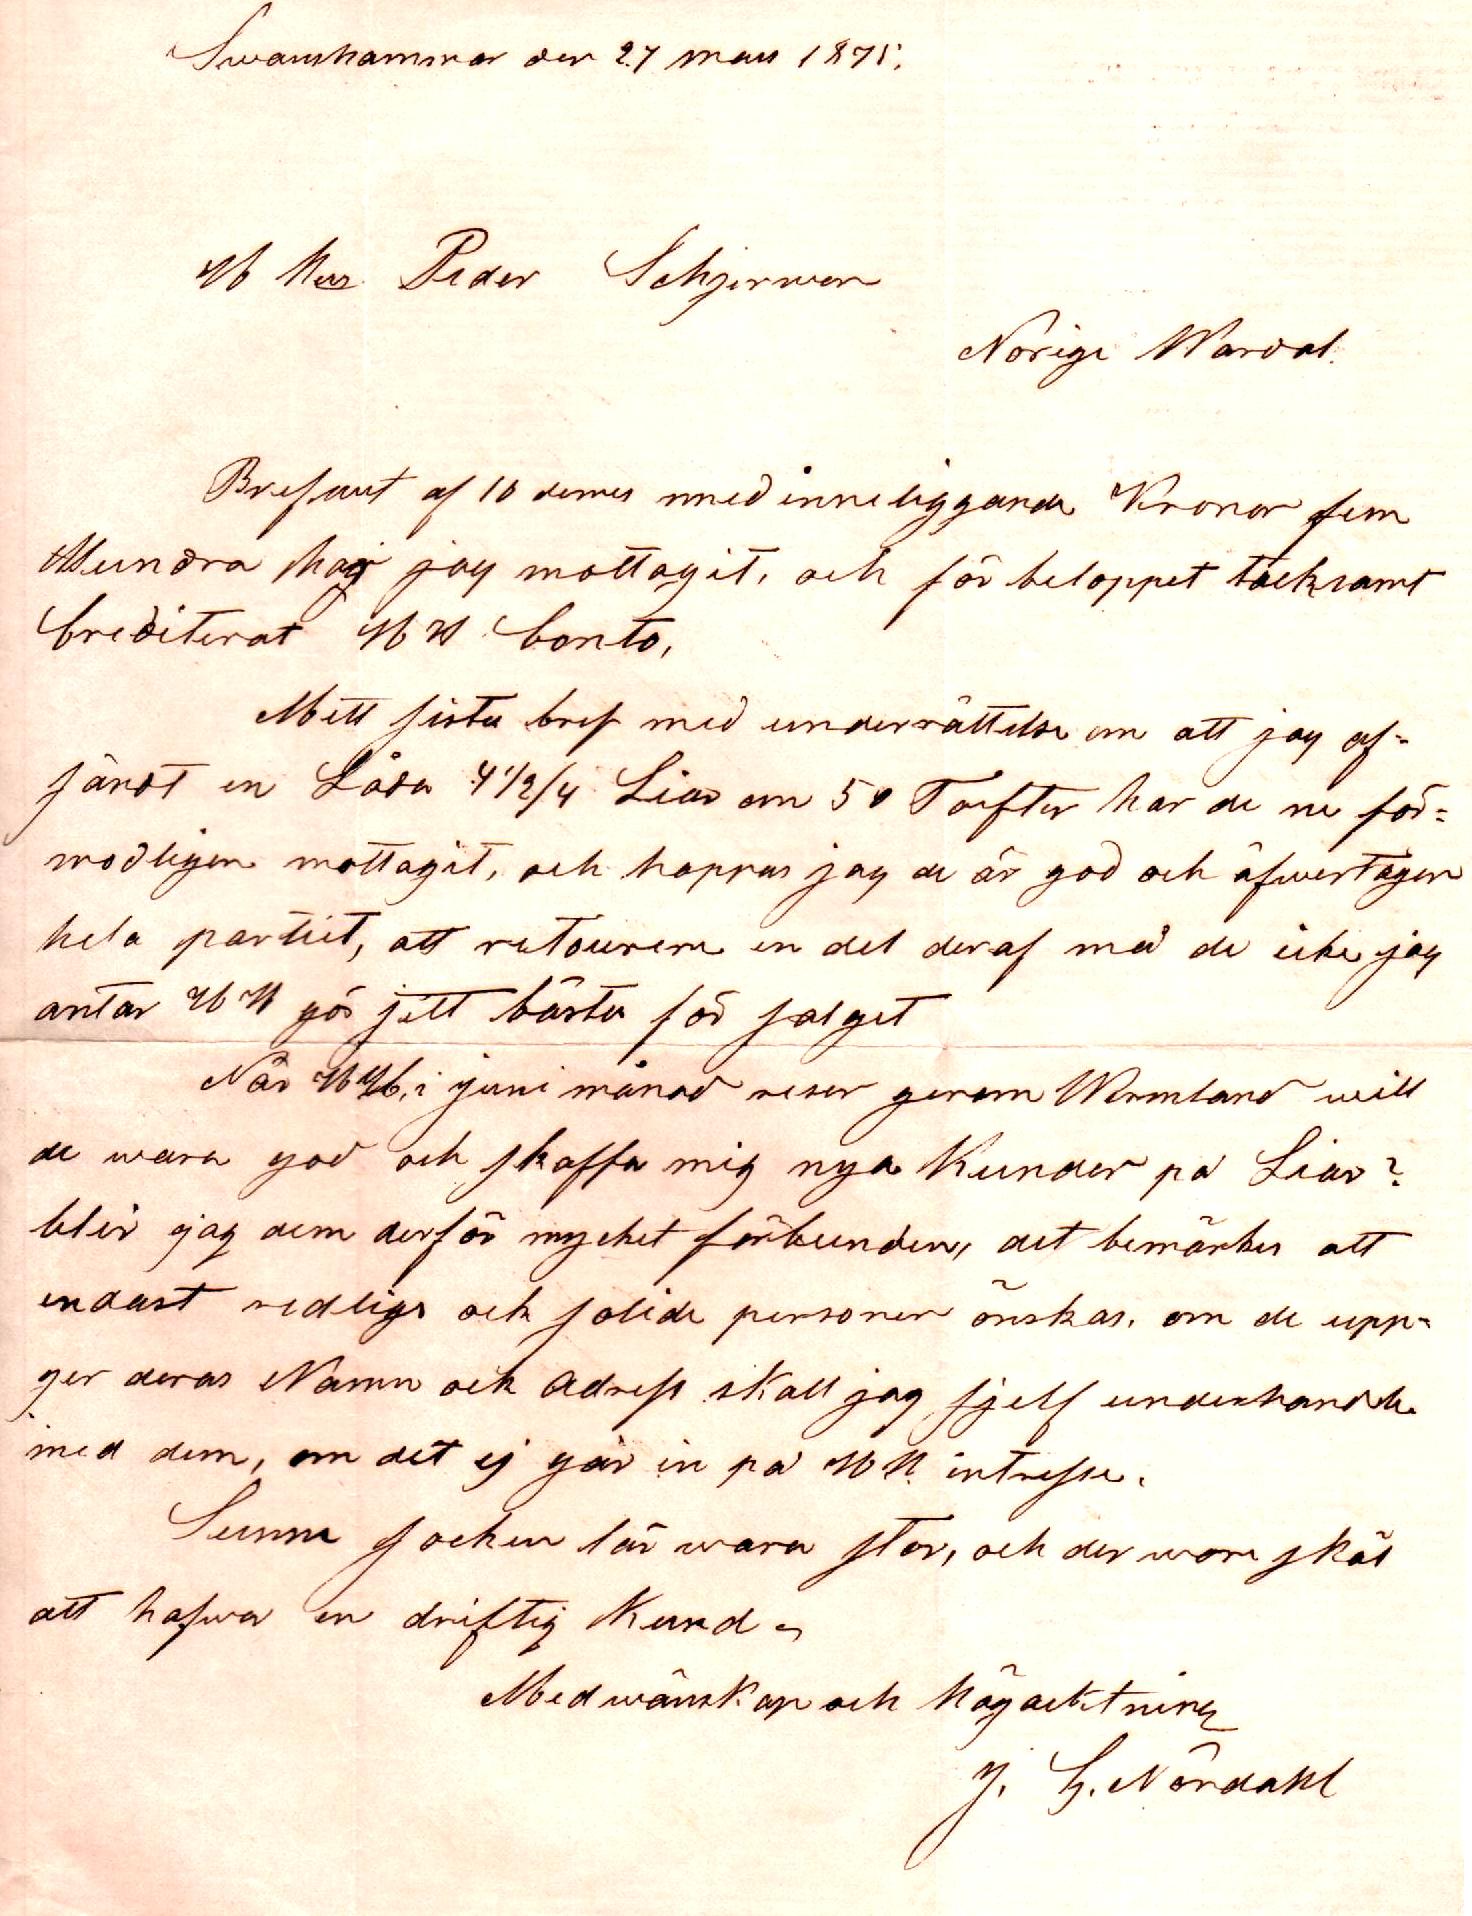 Swanshammar den 27 mars 1875.
H Herr Peder Schjerwen
Norige Wardal.
Brefwet af 10 dennes med inneliggande Kronor fem
Hundra har jag mottagit, och för beloppet tacksamt
Crediterat H H Conto,
Mitt sista bref med underrättelse om att jag af-
sändt en Låda 4 1/2/4 Liar om 50 Tolfter har de nu för-
modligen mottagit, och hoppas jag de är god och öfwertager
hela partiet, att retournera en del deraf må de icke jag
antar H H gör sitt bästa för salget
När H H, i juni månad reser genom Wermland will
de wara god och skaffa mig nya Kunder på Liar?
blir jag dem derför mycket förbunden, det bemärkes att
endast redliga och solide personer önskas, om de upp-
ger deras Namn och Adress skall jag sjelf underhandla
med dem, om det ej går in på H H. intresse.
Sunne socken lär wara stor, och der wore skäl
att hafwa en driftig Kund
Med wänskap och högacktning
J. G. Nordahl